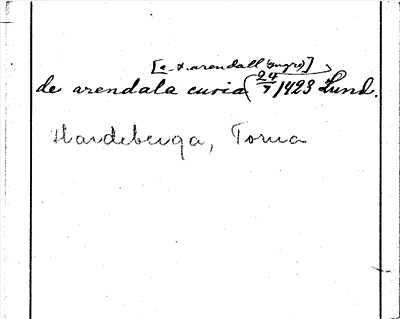 [e. d. arendall (yngre)]
de arendala curia (24/7 1423 Lund.
Hardeberga, Torna